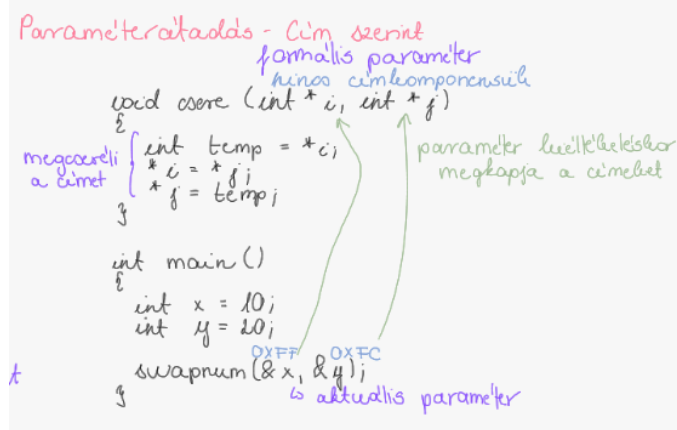 Paraméterátadás - Cím szerint
formális paraméter
nincs címkomponensük
void csere (int * i, int * j)
{
int temp = *i;
* i = * j;
* j = temp;
}
megcseréli
a címet
paraméter kiértékeléskor
megkapja a címeket
int main ()
{
int x = 10;
int y = 20;
0XFF 0XFC
swapnum (&x, &y);
↳ aktuális paraméter
}
t